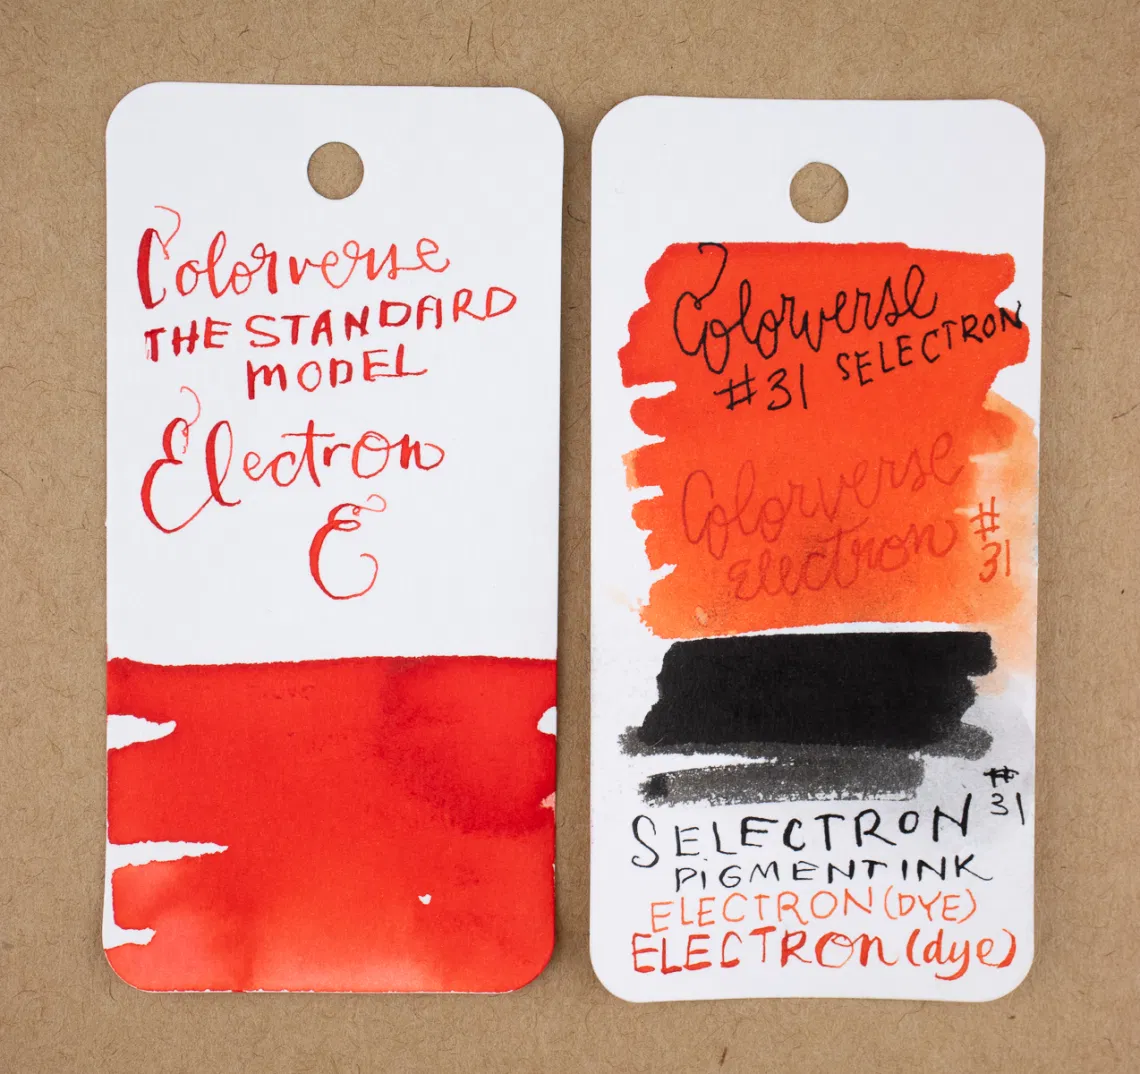 Colorverse
THE STANDARD
MODEL
Electron
E
Colorverse
#31 SELECTRON
Colorverse
Electron #31
SELECTRON #31
PiGMENT INK
ELECTRON (DYE)
ELECTRON (dye)